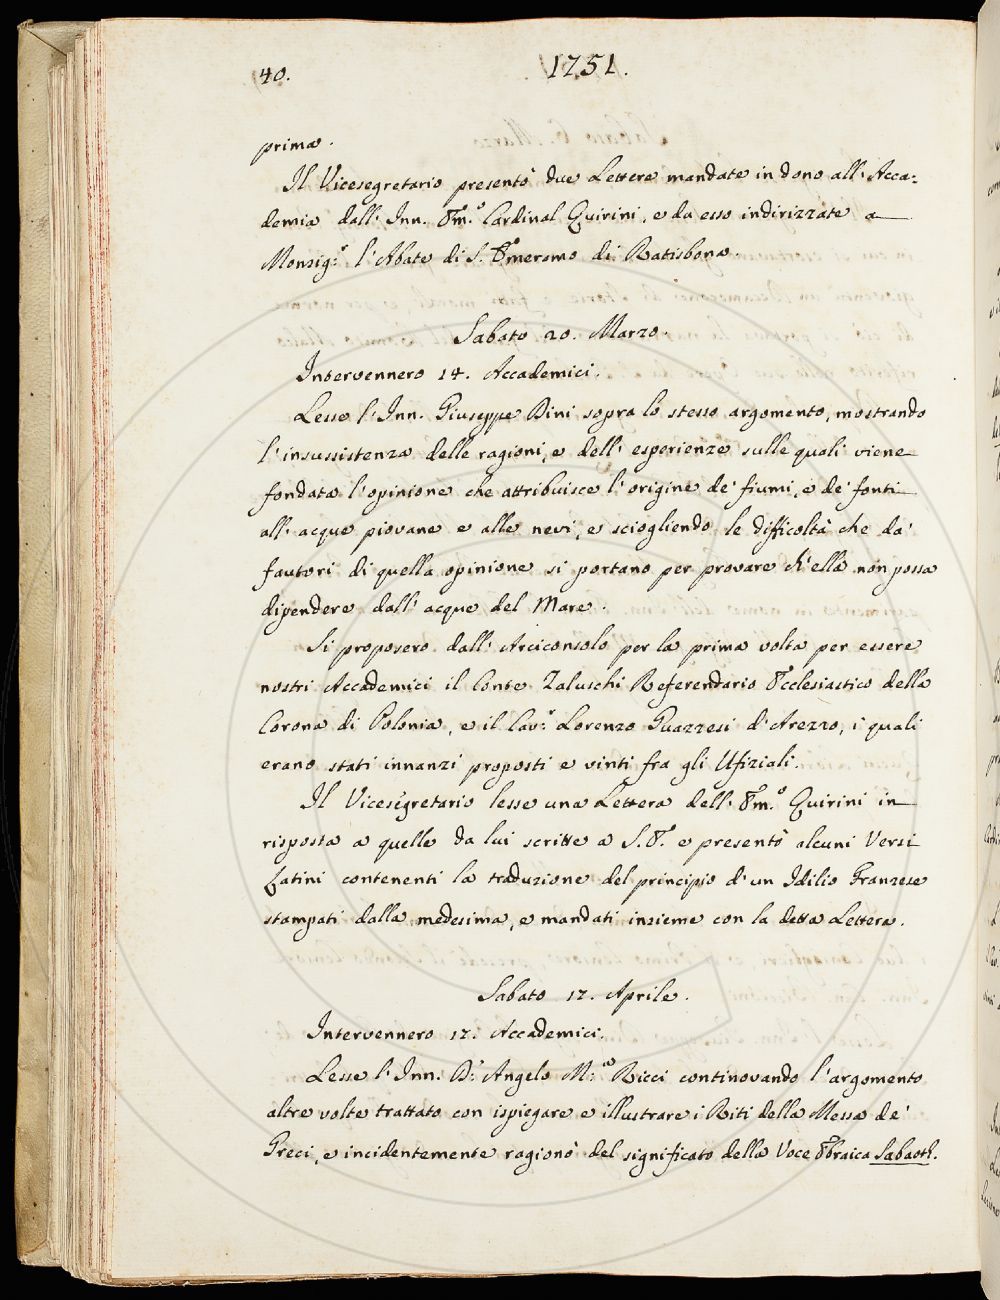 40.
1751.
prima.
Il Vicesegretario presentò due Lettere mandate in dono all' Acca=
demia dall' Inn. Em.o Cardinal Quirini, e da esso indirizzate a
Monsig.r l'Abate di S. Emeramo di Ratisbona.
Sabato 20. Marzo.
Intervennero 14. Accademici.
Lesse l'Inn. Giuseppe Bini sopra lo stesso argomento, mostrando
l'insussistenza delle ragioni, e dell' esperienze sulle quali viene
fondata l'opinione che attribuisce l'origine de' fiumi, e de' fonti
all' acque piovane e alle nevi, e sciogliendo le difficoltà che da'
fautori di quella opinione si portano per provare ch'ella non possa
dipendere dall' acque del Mare.
Si proposero dall' Arciconsolo per la prima volta per essere
nostri Accademici il Conte Zaluschi Referendario Ecclesiastico della
Corona di Polonia, e il Cav.r Lorenzo Guazzesi d'Arezzo, i quali
erano stati innanzi proposti e vinti fra gli Ufiziali.
Il Vicesegretario lesse una Lettera dell' Em.o Quirini in
risposta a quelle da lui scritte a S. E. e presentò alcuni Versi
Latini contenenti la traduzione del principio d'un Idilio Franzese
stampati dalla medesima, e mandati insieme con la detta Lettera.
Sabato 17. Aprile.
Intervennero 17. Accademici.
Lesse l'Inn. D.r Angelo M.a Ricci continovando l'argomento
altre volte trattato con ispiegare e illustrare i Riti della Messa de'
Greci, e incidentemente ragionò del significato della Voce Ebraica Sabaoth.